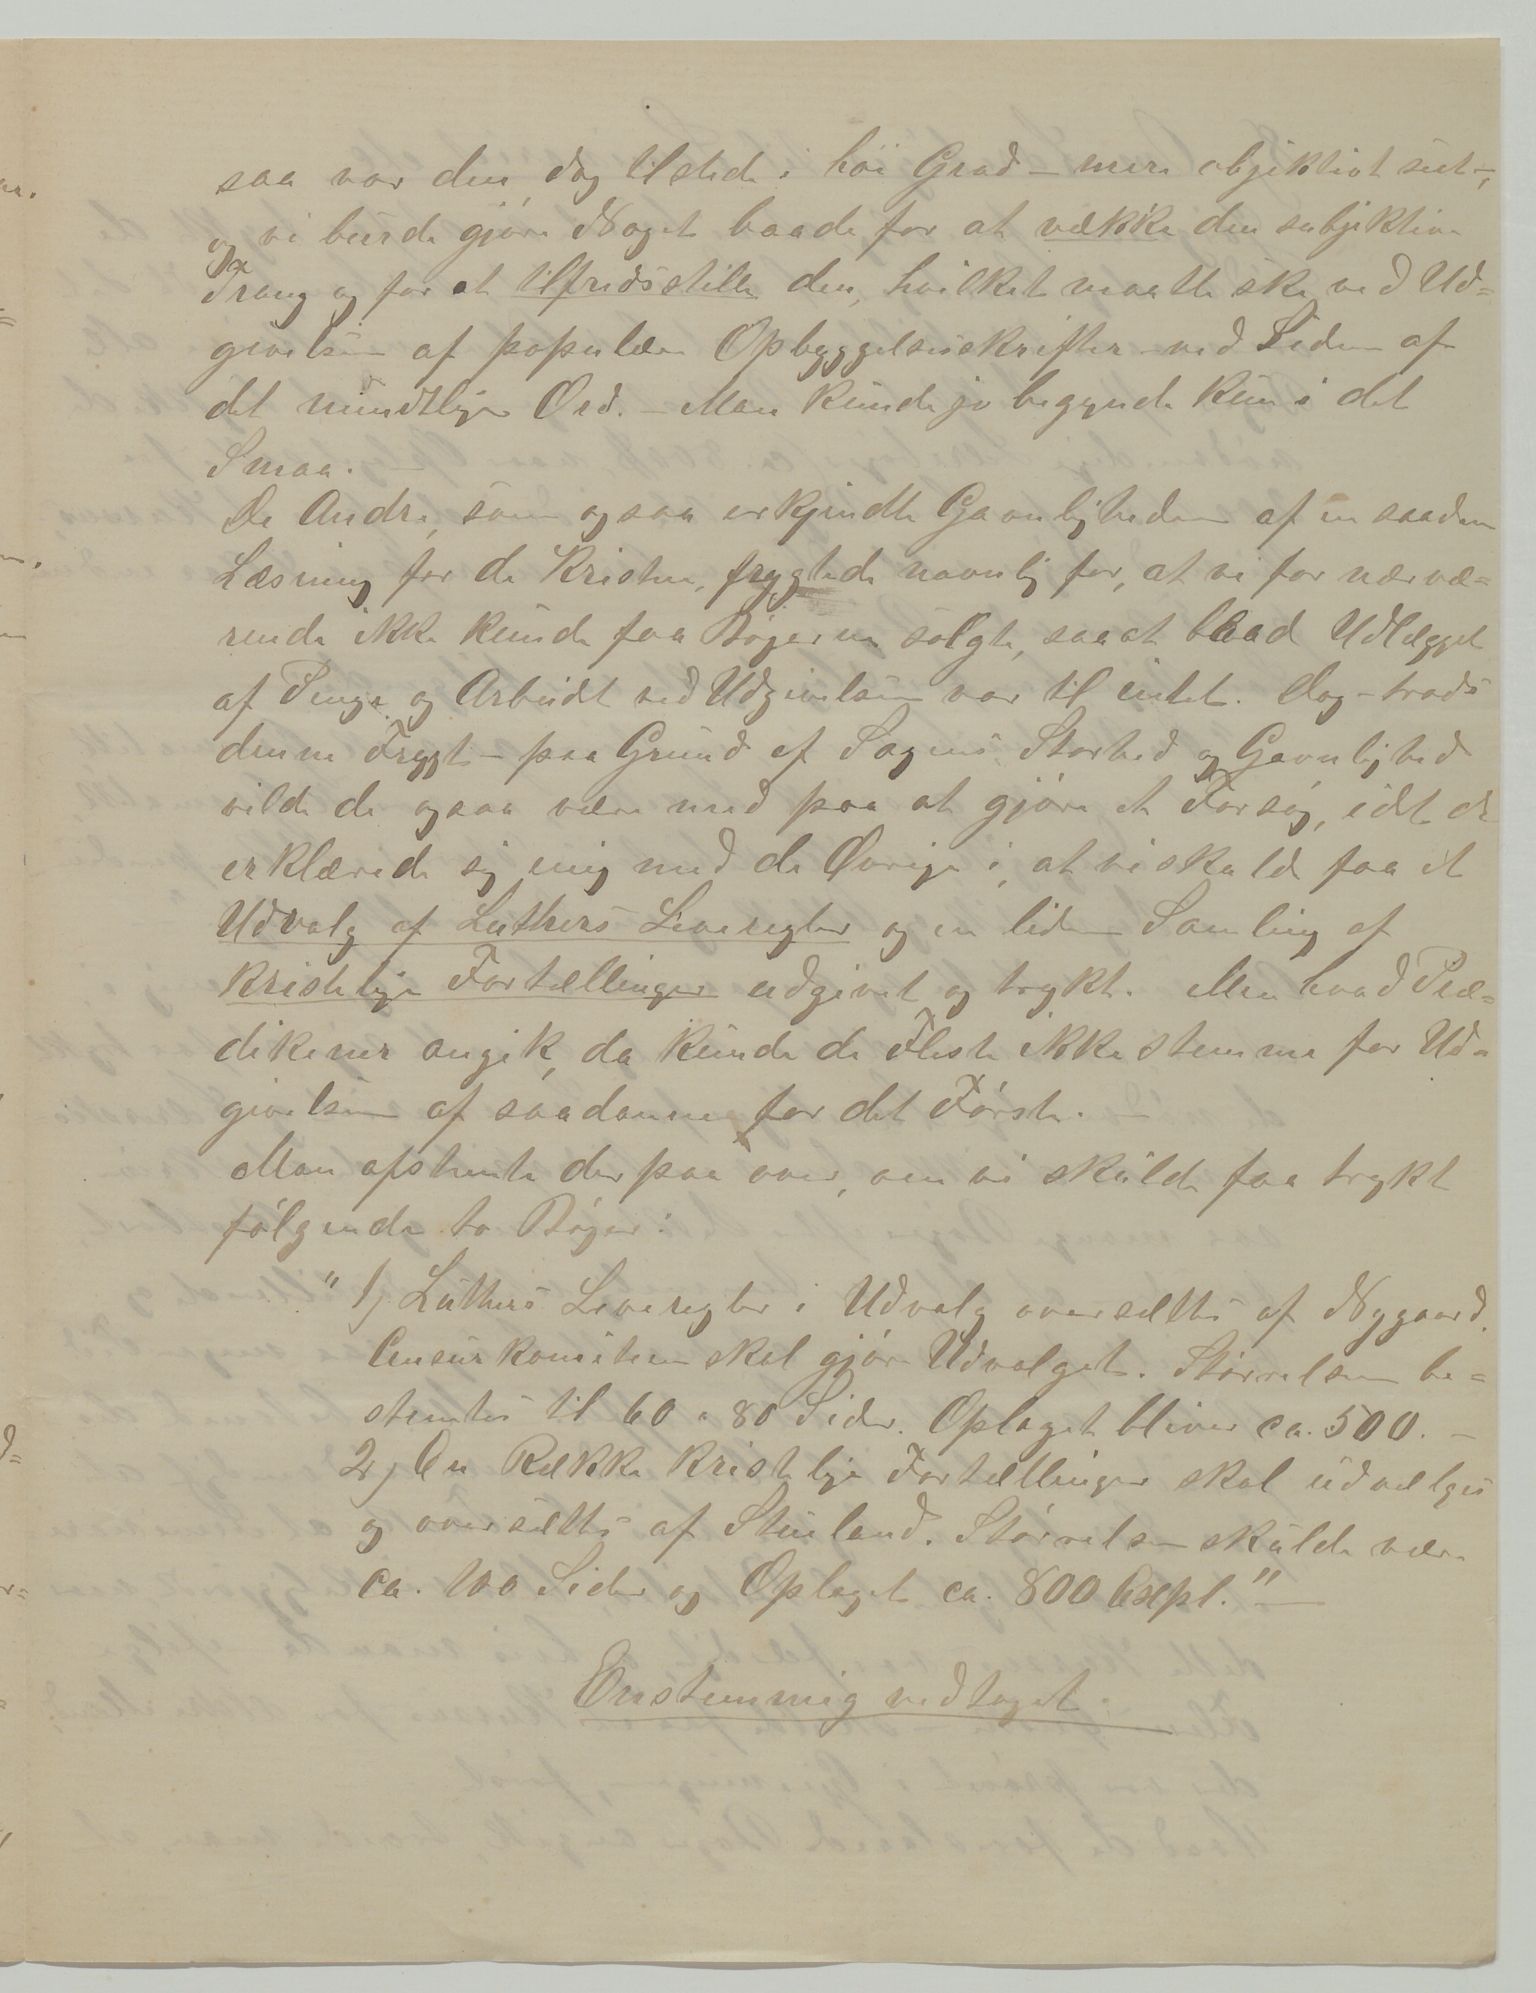 saa var den dog tilstede i höi Grad – mere objektivt seet –,
og vi burde gjöre Noget baade for at vække den subjektive
Trang og for at tilfredsstille den, hvilket maatte ske ved Ud=
givelsen af populære Opbyggelsesskrifter ved Siden af
det mundtlige Ord. – Man kunde jo begynde kun i det
Smaa. –
De Andre, som ogsaa erkjendte Gavnligheden af en saadan
Læsning for de Kristne, frygtede navnlig for, at vi for nærvæ=
rende ikke kunde faa Bögerne solgte, saa at baad Udlægget
af Penge og Arbeidet ved Udgivelsen var til intet. Dog – trods
denne Frygt – paa Grund af Sagens Storhed og Gavnlighed
vilde de ogsaa være med paa at gjöre et Forsög, idet de
erklærede sig enig med de Övrige i, at vi skulde faa et
Udvalg af Luthers Leveregler og en liden Samling af
kristelige Fortællinger udgivet og trykt. Men hvad Præ=
dikener angik, da kunde de Fleste ikke stemme for Ud=
givelsen af saadanne for det Förste. –
Man afstemte derpaa over, om vi skulde faa trykt
fölgende to Böger:
" 1) Luthers Leveregler i Udvalg oversættes af Nygaard.
Censurkomiteen skal gjöre Udvalget. Störrelsen be=
stemtes til 60 a 80 Sider. Oplaget bliver ca. 500. –
2) En Række kristelige Fortællinger skal udvælges
og oversættes af Stueland. Störrelsen skulde være
ca. 100 Sider og Oplaget ca. 800 Exepl." –
Enstemmig vedtaget.